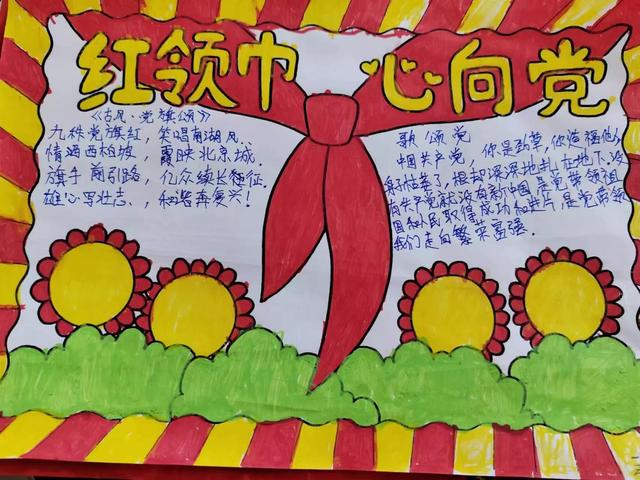 红领巾 心向党
《古风·党旗颂》
九秩党旗红，笑唱南湖风．
情洒西柏坡，霞映北京城．
旗手前引路，亿众续长征．
雄心写壮志、，和谐再复兴！
歌颂党
中国共产党，你是劲草，你造福他人
身子枯萎了，根却深深地扎在地下．没
有共产党就没有新中国 是党带领祖
国和人民取得成功和 是党带领
我们走向繁荣富强．